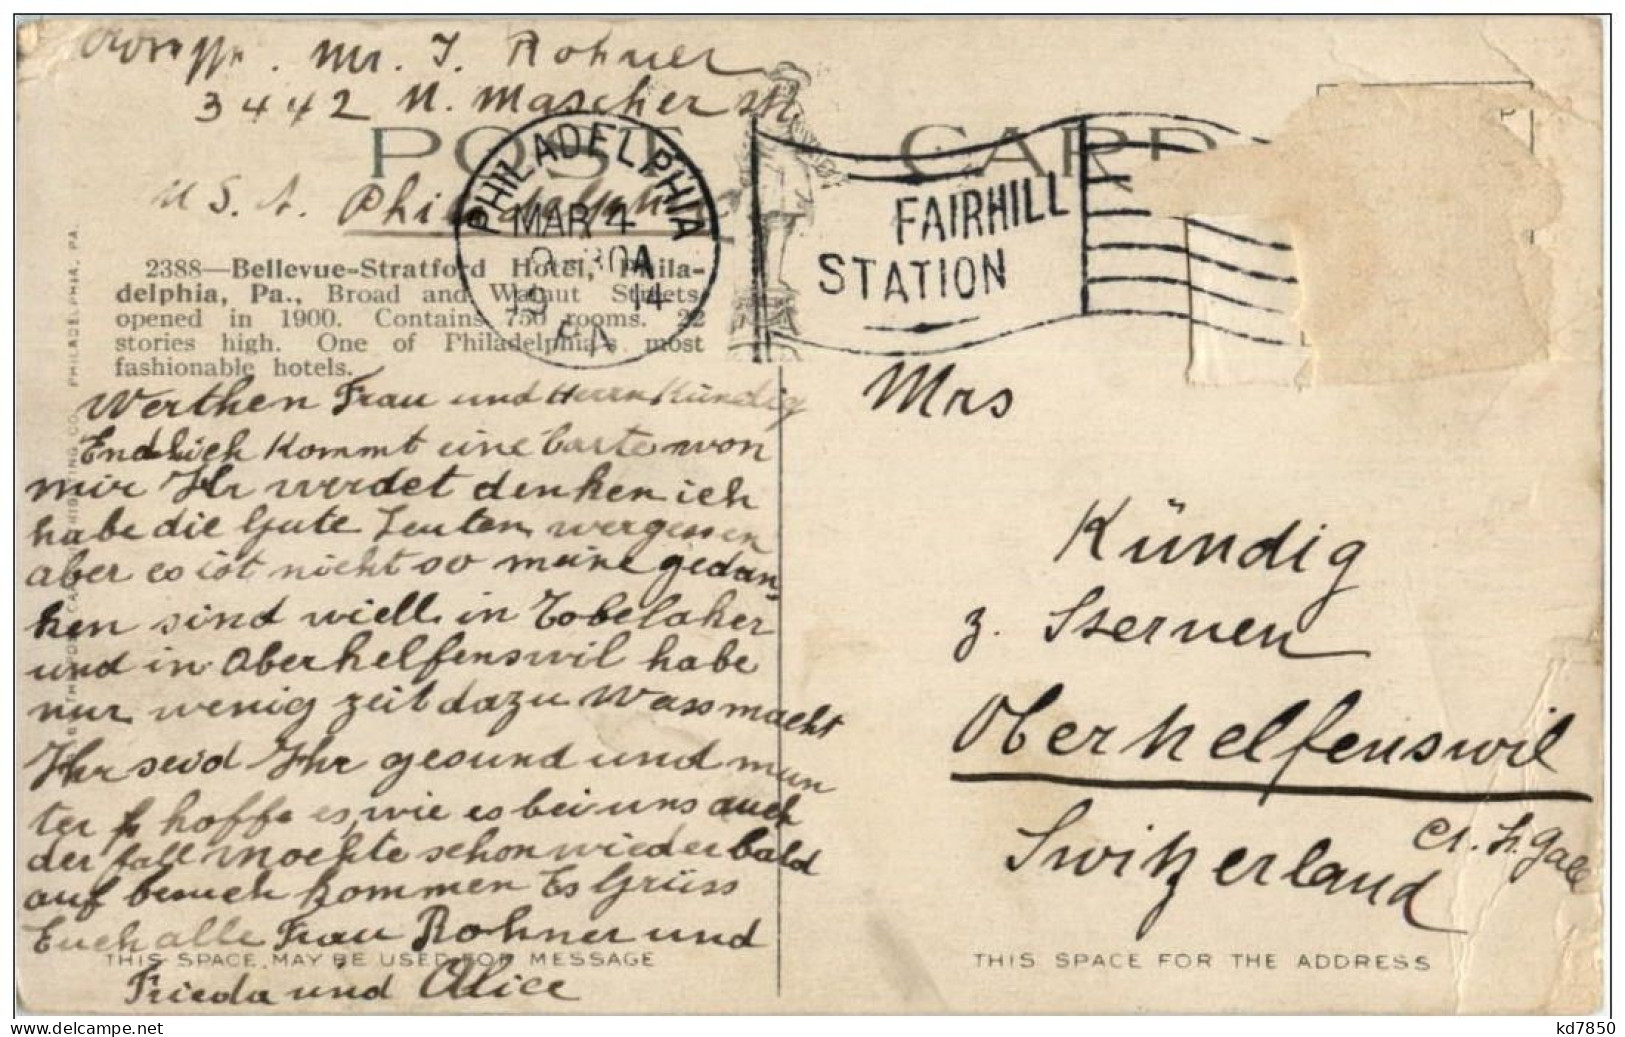 Mr. J. Rohner
3442 N. Mascher str
POST CARD
U S. A. Philadelphia
PHILADELPHIA
MAR 4
30A
1914
PA
FAIRHILL
STATION
2388—Bellevue-Stratford Hotel, Phila-
delphia, Pa., Broad and Walnut Streets,
opened in 1900. Contains 750 rooms. 22
stories high. One of Philadelphia's most
fashionable hotels.
Werthen Frau und Herrn Kündig
Endlich kommt eine Carte von
mir Ihr werdet denken ich
habe die Gute Leuten wergessen
aber es ist nicht so meine gedan-
ken sind wiell in Tobelaker
und in Oberhelfenswil habe
nur wenig zeit dazu Wass macht
Ihr seid Ihr gesund und mun
ter hoffe es, wie es bei uns auch
der fall Moehte schon wieder bald
auf besuch kommen Es Grüss
Euch alle Frau Rohner und
Frieda und Alice
THIS SPACE MAY BE USED FOR MESSAGE
Mrs
Kündig
z. Sternen
Oberhelfenswil
Ct. St. Gall
Switzerland
THIS SPACE FOR THE ADDRESS
PHILADELPHIA, PA.
kd7850
www.delcampe.net